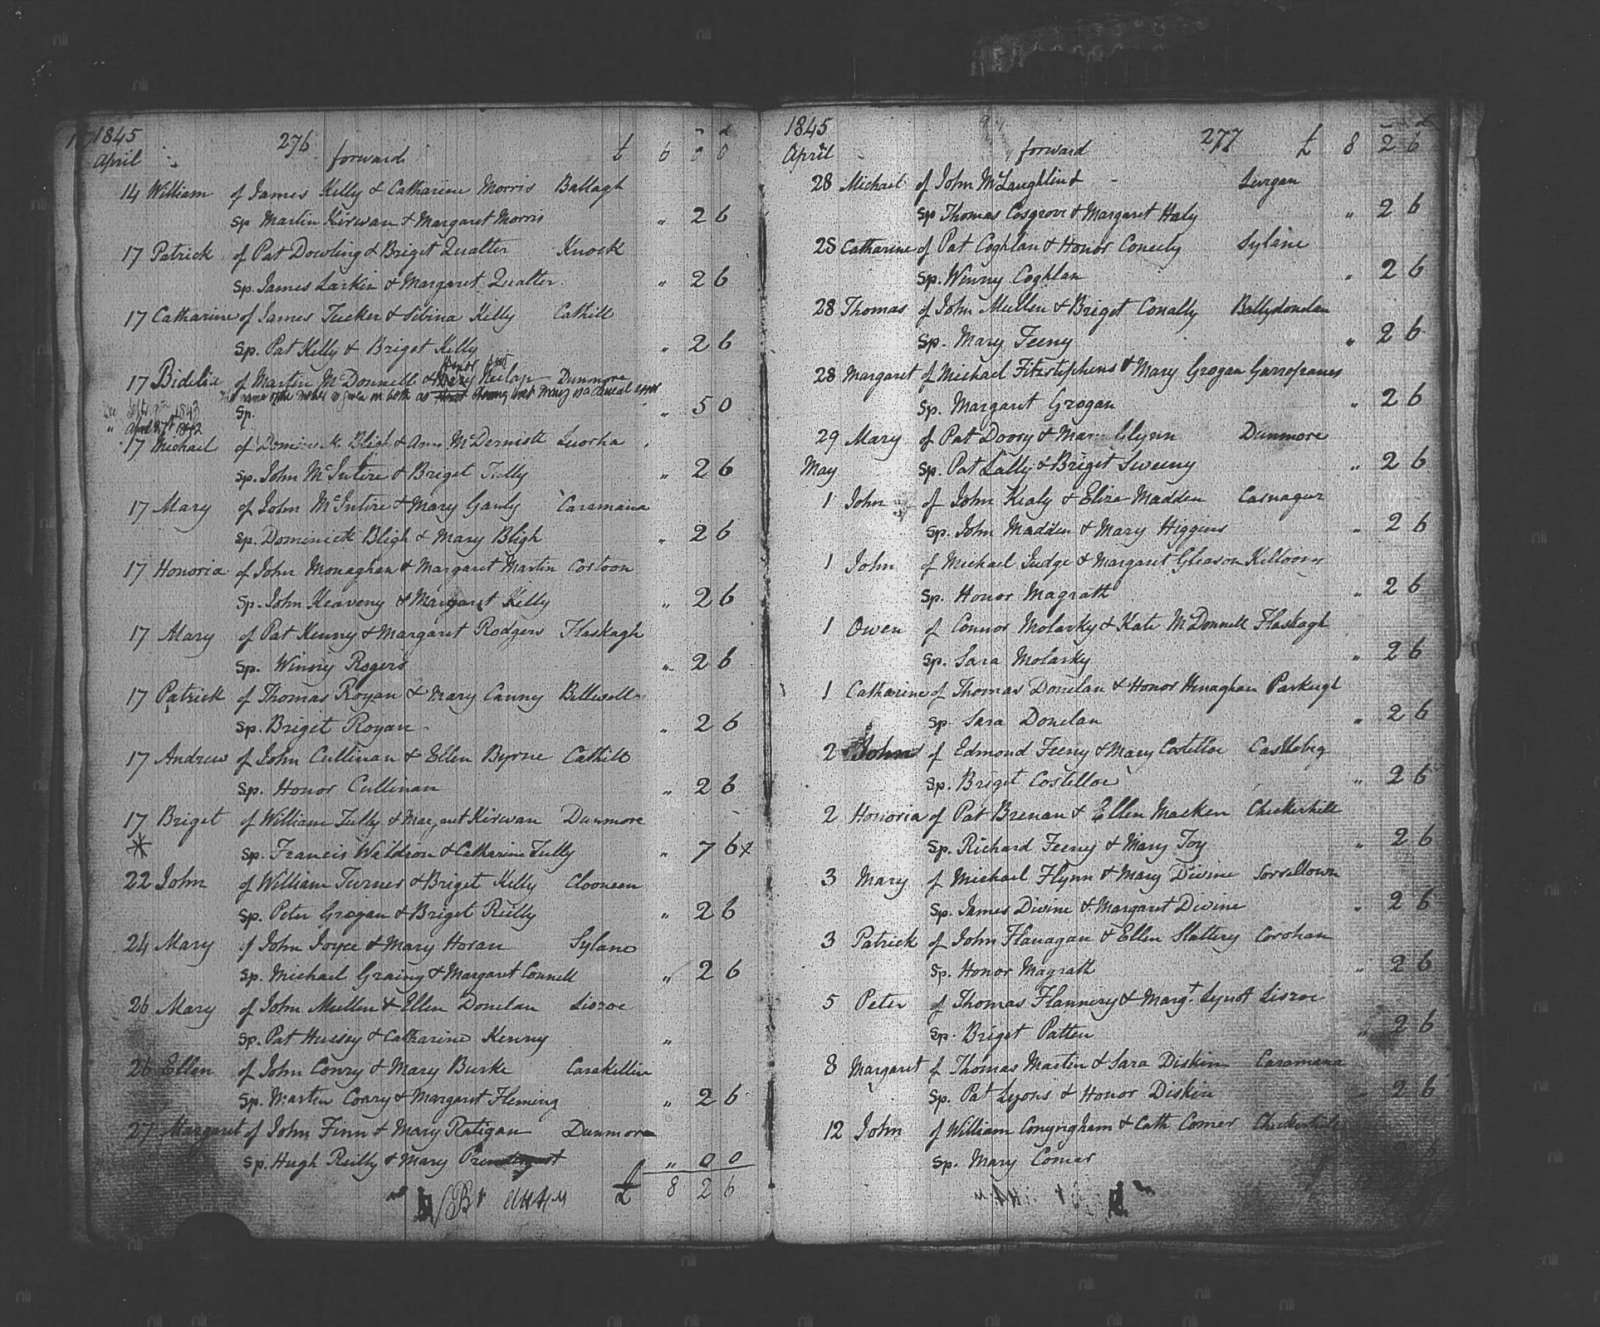 1845
276
April forward £ 6 0 0
14 William of James Kelly & Catharine Morris Ballagh
Sp. Martin Kirwan & Margaret Morris " 2 6
17 Patrick of Pat Dowling & Briget Qualter Knock
Sp. James Larkin & Margaret Qualter " 2 6
17 Catharine of James Tucker & Sibina Kelly Cathill
Sp. Pat Kelly & Briget Kelly " 2 6
17 Bidelia of Martin McDonnell & Dunmore
Sp. " 5 0
17 Michael of Dominick Bligh & Ann McDermott
Sp. John McIntire & Briget Tully " 2 6
17 Mary of John McIntire & Mary Ganly Caramana
Sp. Dominick Bligh & Mary Bligh " 2 6
17 Honoria of John Monaghan & Margaret Martin Cortoon
Sp. John Keaveny & Margaret Kelly " 2 6
17 Mary of Pat Kenny & Margaret Rodgers Flaskagh
Sp. Winny Rogers " 2 6
17 Patrick of Thomas Royan & Mary Canny
Sp. Briget Royan " 2 6
17 Andrew of John Cullinan & Ellen Byrne Cathill
Sp. Honor Cullinan " 2 6
17 Briget of William Tully & Margaret Kirwan Dunmore
* Sp. Francis Waldron & Catharine Tully " 7 6
22 John of William Turner & Briget Kelly Cloonean
Sp. Peter Grogan & Briget Reilly " 2 6
24 Mary of John Joyce & Mary Horan Sylane
Sp. Michael Grainy & Margaret Connell " 2 6
26 Mary of John Mullen & Ellen Donelan Lisroe
Sp. Pat Hussey & Catharine Kenny "
26 Ellen of John Conry & Mary Burke Carakillin
Sp. Martin Conry & Margaret Fleming " 2 6
27 Margaret of John Finn & Mary Ratigan Dunmore
Sp. Hugh Reilly & Mary Prendergast " 0 0
£ 8 2 6
1845
277
April forward £ 8 2 6
28 Michael of John McLaughlin & - Lurgan
Sp. Thomas Cosgrove & Margaret Haly " 2 6
28 Catharine of Pat Coghlan & Honor Coneely Sylane
Sp. Winny Coghlan " 2 6
28 Thomas of John Mullen & Briget Conally Ballydonelan
Sp. Mary Feeny " 2 6
28 Margaret of Michael Fitzstephens & Mary Grogan Garrafraunes
Sp. Margaret Grogan " 2 6
29 Mary of Pat Doory & Mary Glynn Dunmore
May Sp. Pat Lally & Briget Sweeny " 2 6
1 John of John Kealy & Eliza Madden Carnagur
Sp. John Madden & Mary Higgens " 2 6
1 John of Michael Judge & Margaret Gleason Killoony
Sp. Honor Magrath " 2 6
1 Owen of Connor Molarky & Kate McDonnell Flaskagh
Sp. Sara Molarky " 2 6
1 Catharine of Thomas Donelan & Honor Henaghan Parkeigh
Sp. Sara Donelan " 2 6
2 John of Edmond Feeny & Mary Costelloe Castlebeg
Sp. Briget Costelloe " 2 6
2 Honoria of Pat Brenan & Ellen Macken Chickerhill
Sp. Richard Feeny & Mary Foy " 2 6
3 Mary of Michael Flynn & Mary Divine Sorreltown
Sp. James Divine & Margaret Divine " 2 6
3 Patrick of John Flanagan & Ellen Slattery Corohan
Sp. Honor Magrath " 2 6
5 Peter of Thomas Flannery & Margt. Synot Lisroe
Sp. Briget Patten " 2 6
8 Margaret of Thomas Martin & Sara Diskin Caramana
Sp. Pat Lyons & Honor Diskin 2 6
12 John of William Conyngham & Cath Comer Chickerhill
Sp. Mary Comer